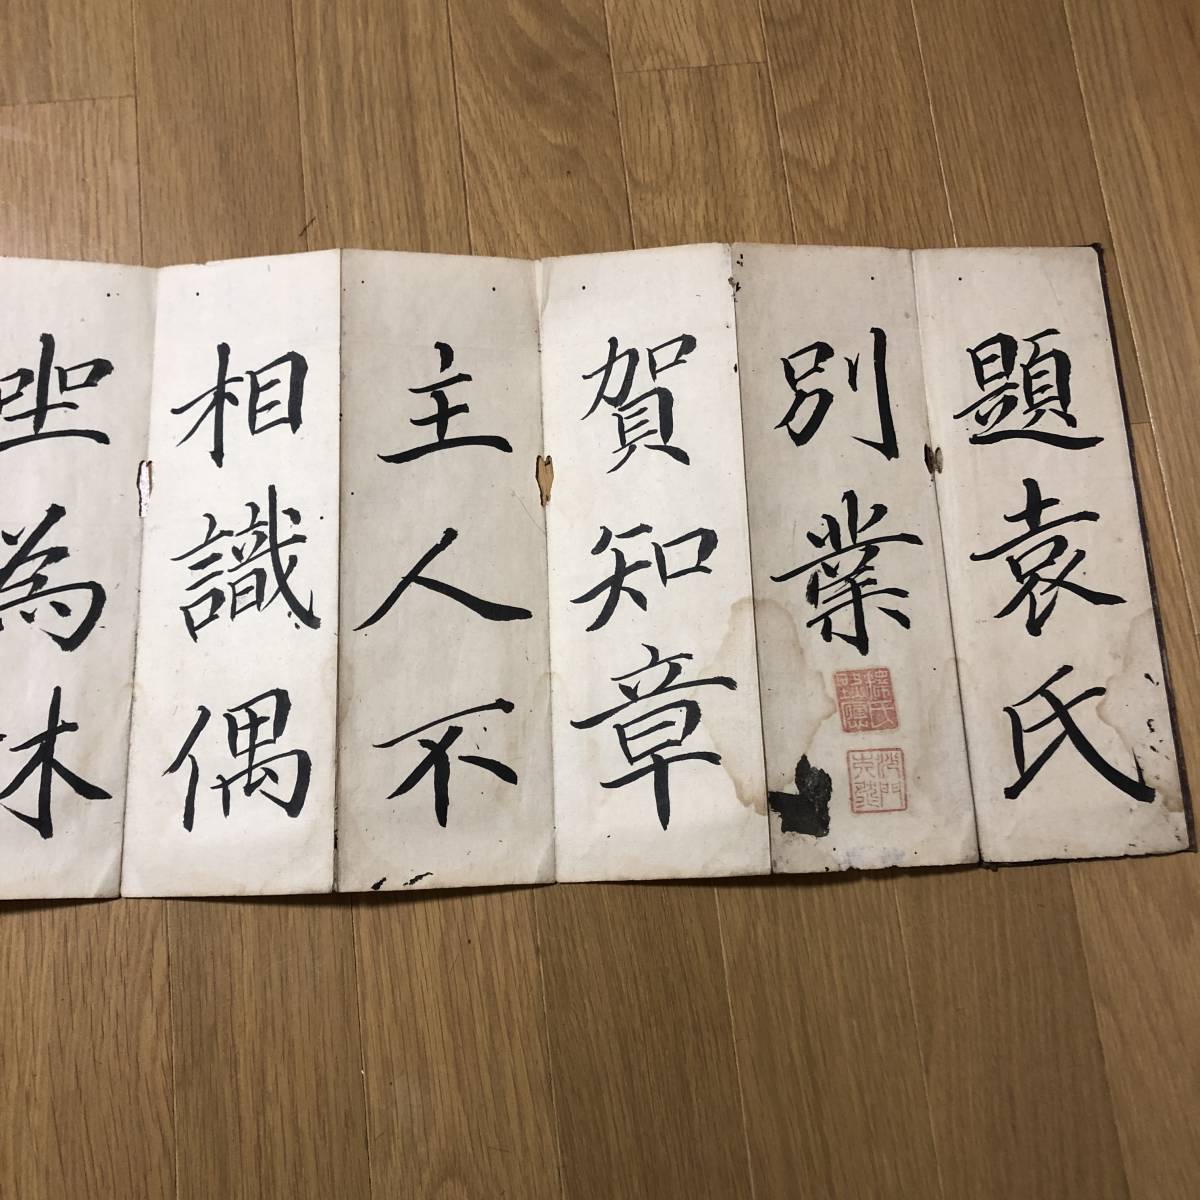 題袁氏
別業
賀知章
主人不
相識偶
坐為林
沙門